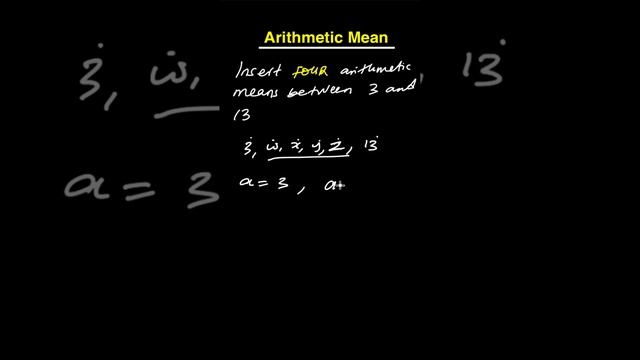 Arithmetic Mean
Insert FOUR arithmetic
means between 3 and
13
3, w, x, y, z, 13
a = 3, a+
3, w, 13
a = 3